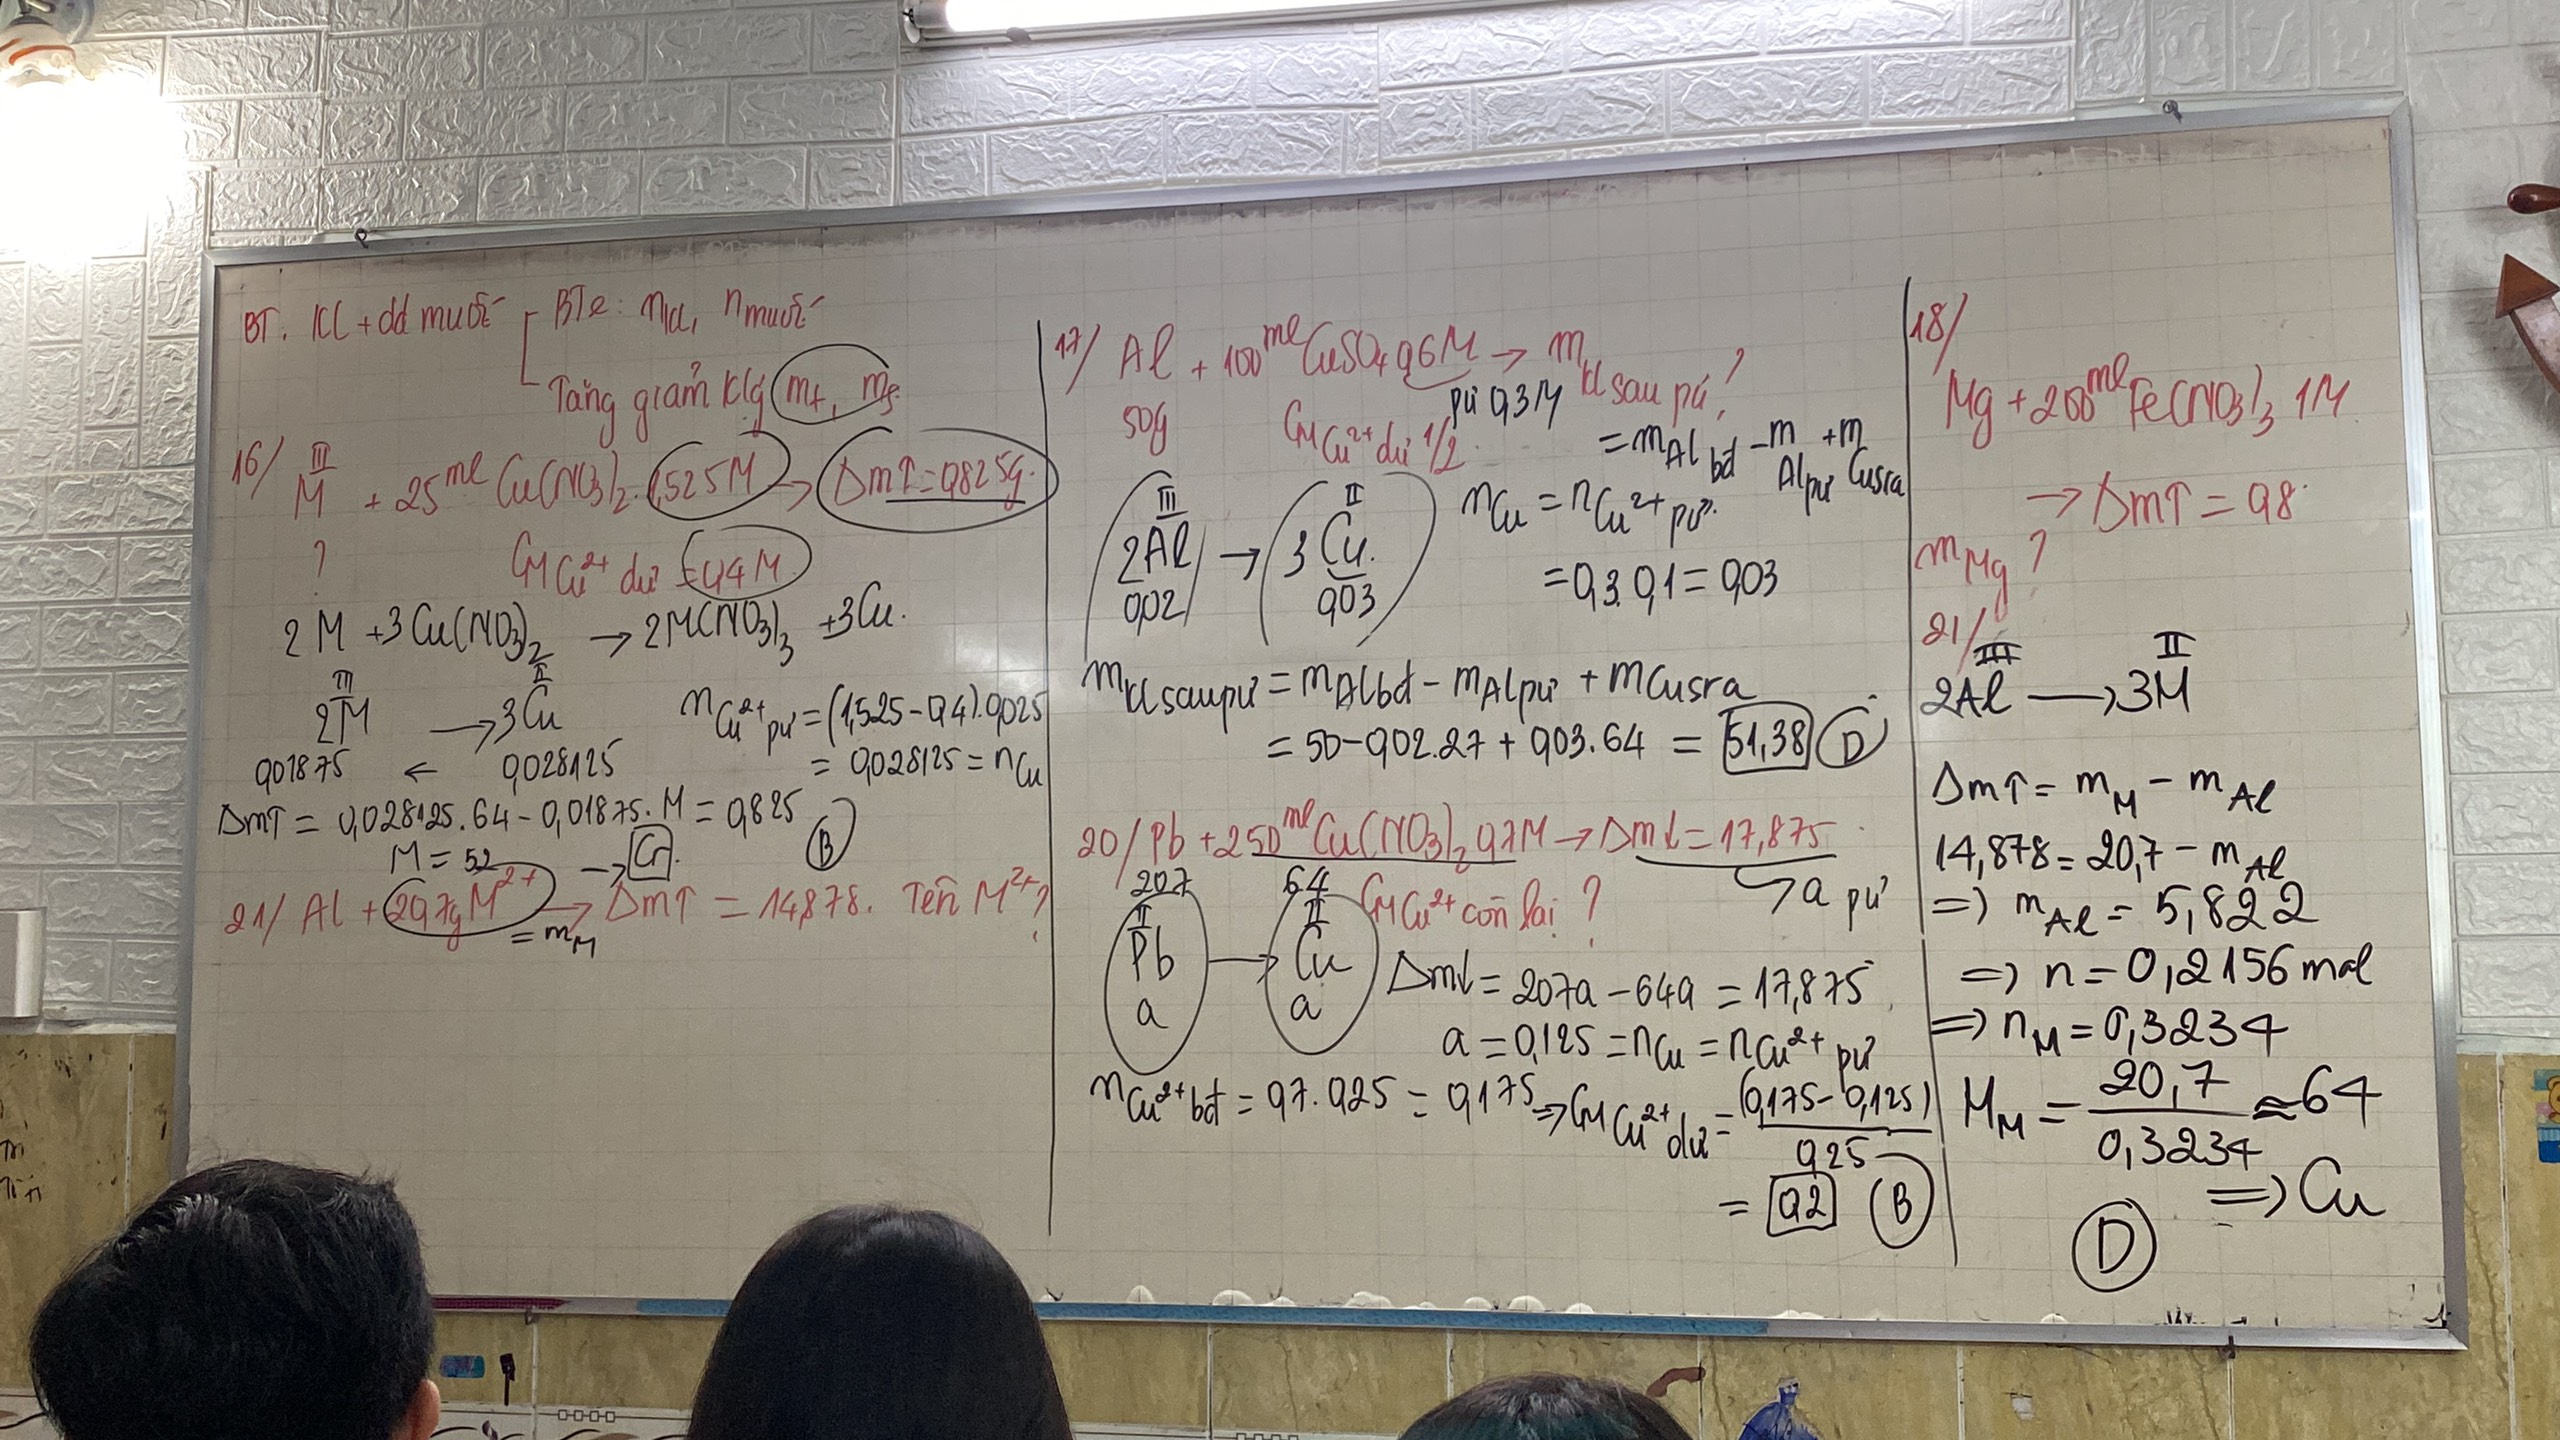 BT. Kl + dd muối
BTe: nKl, nmuối
Tăng giảm klg m↑, m↓
16/ III
M + 25ml Cu(NO3)2 1,525M → Δm↑ = 0,825g.
? CM Cu2+ dư = 0,4M
2M + 3Cu(NO3)2 → 2M(NO3)3 + 3Cu.
III II
2M → 3Cu
0,01875 ← 0,028125
nCu2+ pứ = (1,525 - 0,4).0,025
= 0,028125 = nCu
Δm↑ = 0,028125.64 - 0,01875.M = 0,825
M = 52 → Cr. B
21/ Al + 20,7g M2+ → Δm↑ = 14,878. Tên M2+?
= mM
17/ Al + 100ml CuSO4 0,6M → m Kl sau pứ?
pứ 0,3M
50g CM Cu2+ dư 1/2.
= mAl bđ - m Al pứ + m Cu sra
III II
2Al → 3Cu.
0,02 0,03
nCu = nCu2+ pứ.
= 0,3.0,1 = 0,03
mKl sau pứ = mAl bđ - mAl pứ + mCu sra
= 50 - 0,02.27 + 0,03.64 = 51,38 D
20/ Pb + 250ml Cu(NO3)2 0,7M → Δm↓ = 17,875
→ a pứ
207 64
II II
CM Cu2+ còn lại?
Pb → Cu
a a
Δm↓ = 207a - 64a = 17,875
a = 0,125 = nCu = nCu2+ pứ
nCu2+ bđ = 0,7.0,25 = 0,175 => CM Cu2+ dư = (0,175 - 0,125)
0,25
= 0,2 B
18/
Mg + 200ml Fe(NO3)3 1M
→ Δm↑ = 0,8
mMg?
21/
III II
2Al → 3M
Δm↑ = mM - mAl
14,878 = 20,7 - mAl
=> mAl = 5,822
=> n = 0,2156 mol
=> nM = 0,3234
MM = 20,7 ≈ 64
0,3234
=> Cu
D